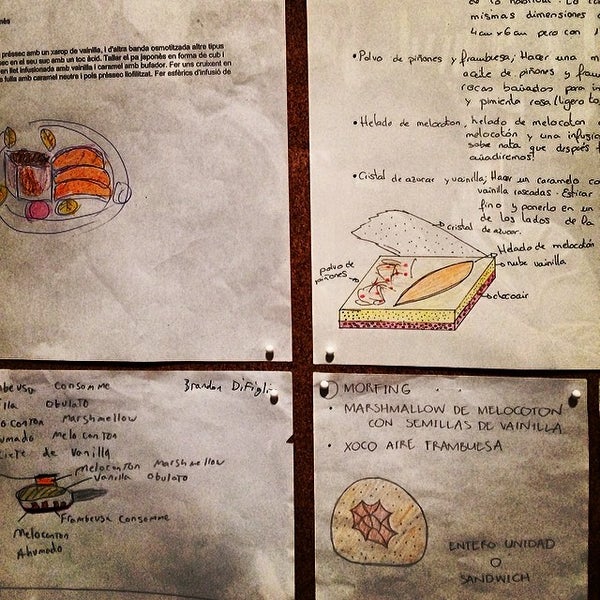 nés
préssec amb un xarop de vainilla, i d'altra banda osmotitzada altre tipus
sec en el seu suc amb un toc àcid. Taller el pa japonès en forma de cub i
en llet infusionada amb vainilla i caramel amb bufador. Fer uns cruixent en
fulla amb caramel neutre i pols préssec liofilitzat. Fer esfèrics d'infusió de
mismas dimensiones
4cm x 6cm pero con 1
• Polvo de piñones y frambuesa; Hacer una
aceite de piñones y
rocas bañados para
y pimienta rosa (ligero
• Helado de melocoton, helado de melocoton
melocotón y una
sobre nata que después
añadiremos!
• Cristal de azucar y vainilla; Hacer un caramelo
vainilla rascadas. Estirar
fino y ponerlo en un
de los lados de la
cristal
de azucar.
Helado de melocotón
nube vainilla
polvo de
piñones
chocoair
consomme
Brandon DiFigli
obulato
marshmellow
melo conton
de vanilla
melocontom marshmellow
vanilla obulato
Frambeusa consomme
Meloconton
Ahumado
MORFING
• MARSHMALLOW DE MELOCOTON
CON SEMILLAS DE VAINILLA
• XOCO AIRE FRAMBUESA
ENTERO UNIDAD
O
SANDWICH